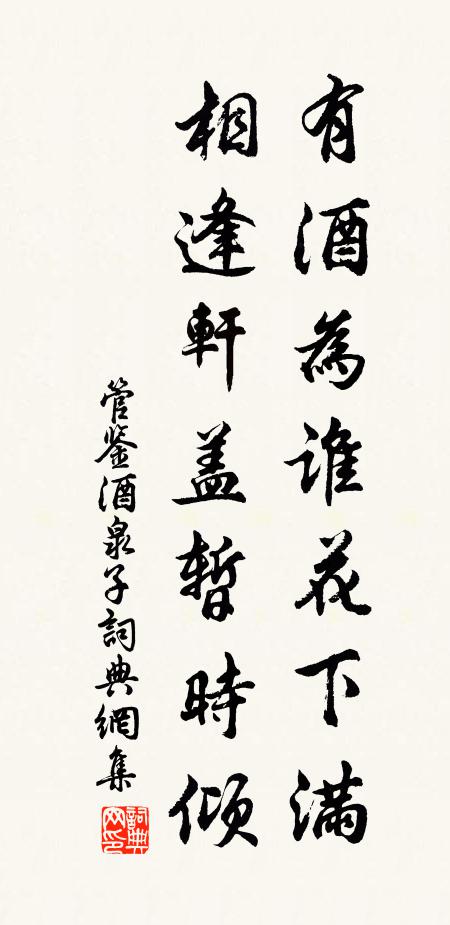 有酒為誰花下滿
相逢軒蓋暫時傾
管鉴酒泉子詞典網集
詞典網印